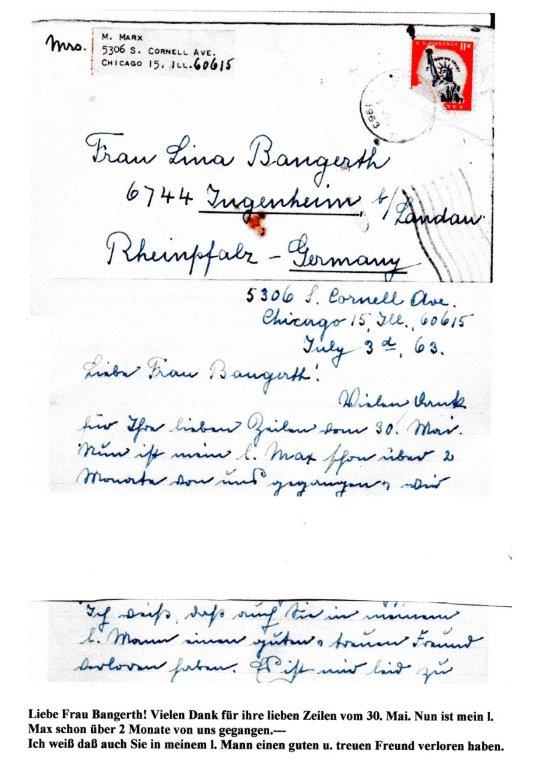 Mrs.
M. MARX
5306 S. CORNELL AVE.
CHICAGO 15, ILL. 60615
U.S. POSTAGE 11¢
1963
Frau Lina Bangerth
6744 Ingenheim b/Landau
Rheinpfalz - Germany
5306 S. Cornell Ave.
Chicago 15, Ill., 60615
July 3d, 63.
Liebe Frau Bangerth!
Vielen Dank
für Ihre lieben Zeilen vom 30. Mai.
Nun ist mein l. Max schon über 2
Monate von uns gegangen, wir
Ich weiß, daß auch Sie in meinem
l. Mann einen guten u. treuen Freund
verloren haben. Es ist mir leid zu
Liebe Frau Bangerth! Vielen Dank für ihre lieben Zeilen vom 30. Mai. Nun ist mein l.
Max schon über 2 Monate von uns gegangen.---
Ich weiß daß auch Sie in meinem l. Mann einen guten u. treuen Freund verloren haben.